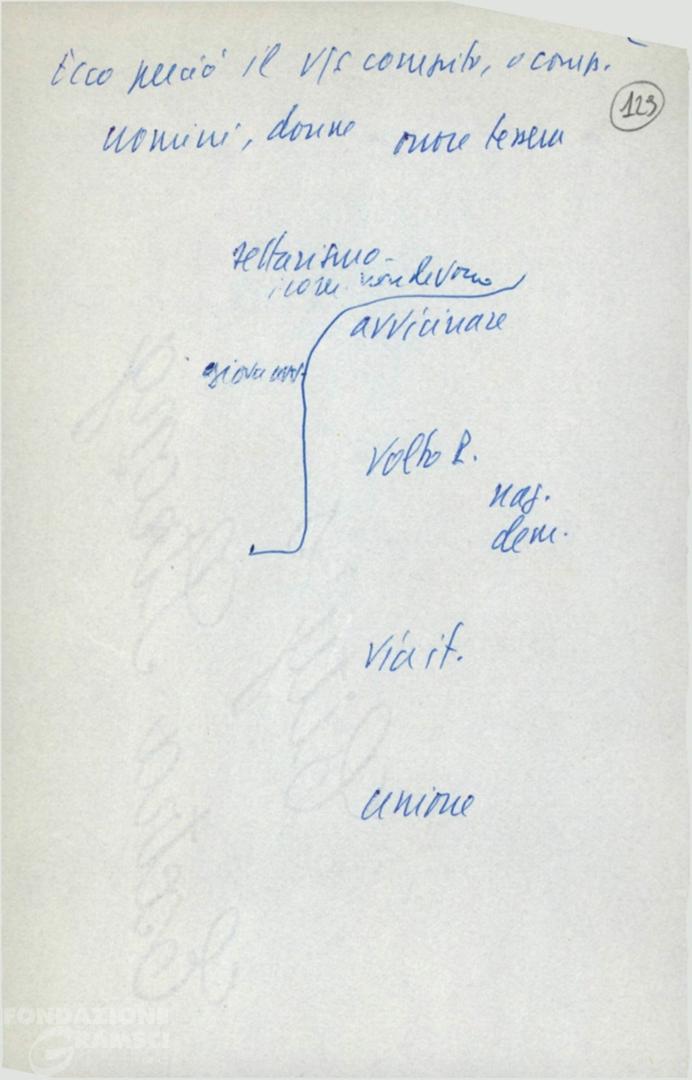 Ecco perciò il vs compito, o comp.
123
uomini, donne onore tessera
settarismo
non devono
avvicinare
giovani
Volto P.
naz.
dem.
Via it.
unione
FONDAZIONE
GRAMSCI